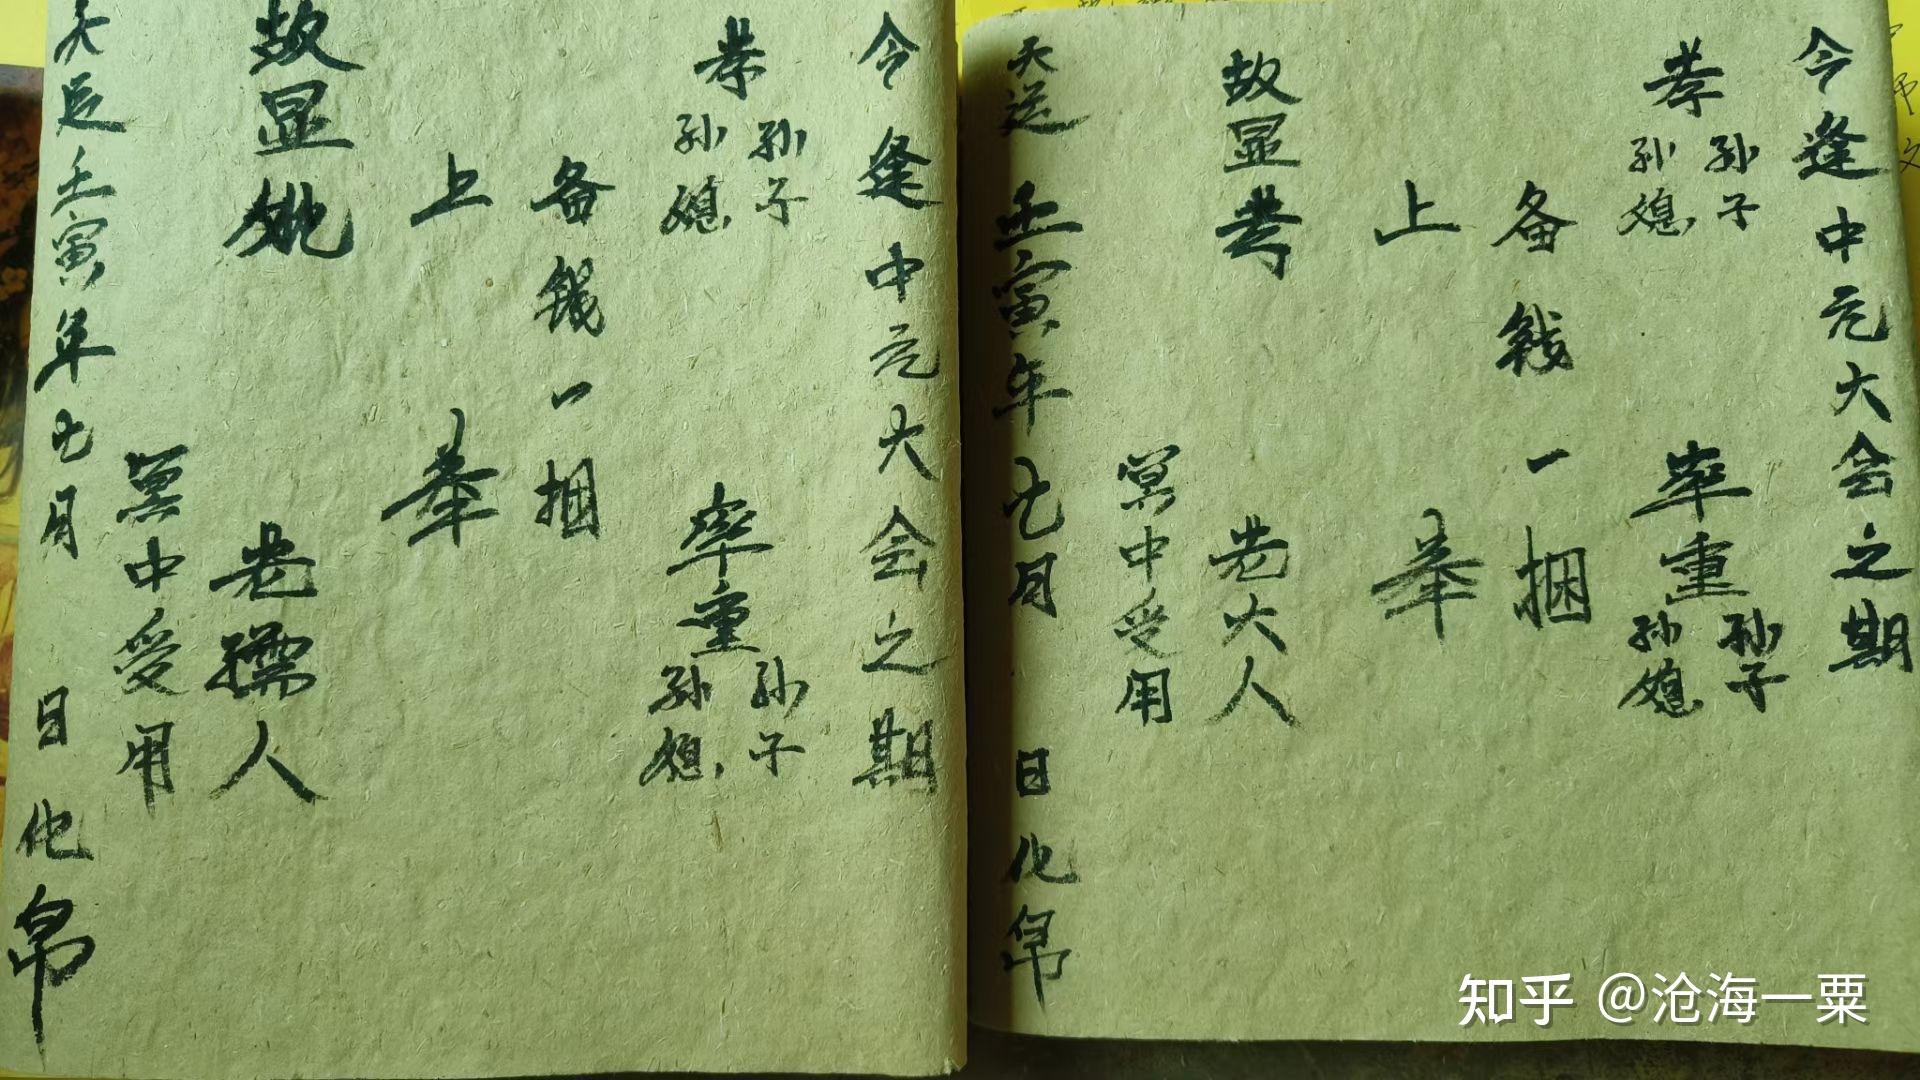 今逢中元大会之期
孝
孙子
孙媳
率重
孙子
孙媳
备钱一捆
上
奉
故显考
老大人
冥中受用
天运
壬寅年七月
日化帛
今逢中元大会之期
孝
孙子
孙媳
率重
孙子
孙媳
备钱一捆
上
奉
故显妣
老孺人
冥中受用
天运壬寅年七月
日化帛
知乎 @沧海一粟